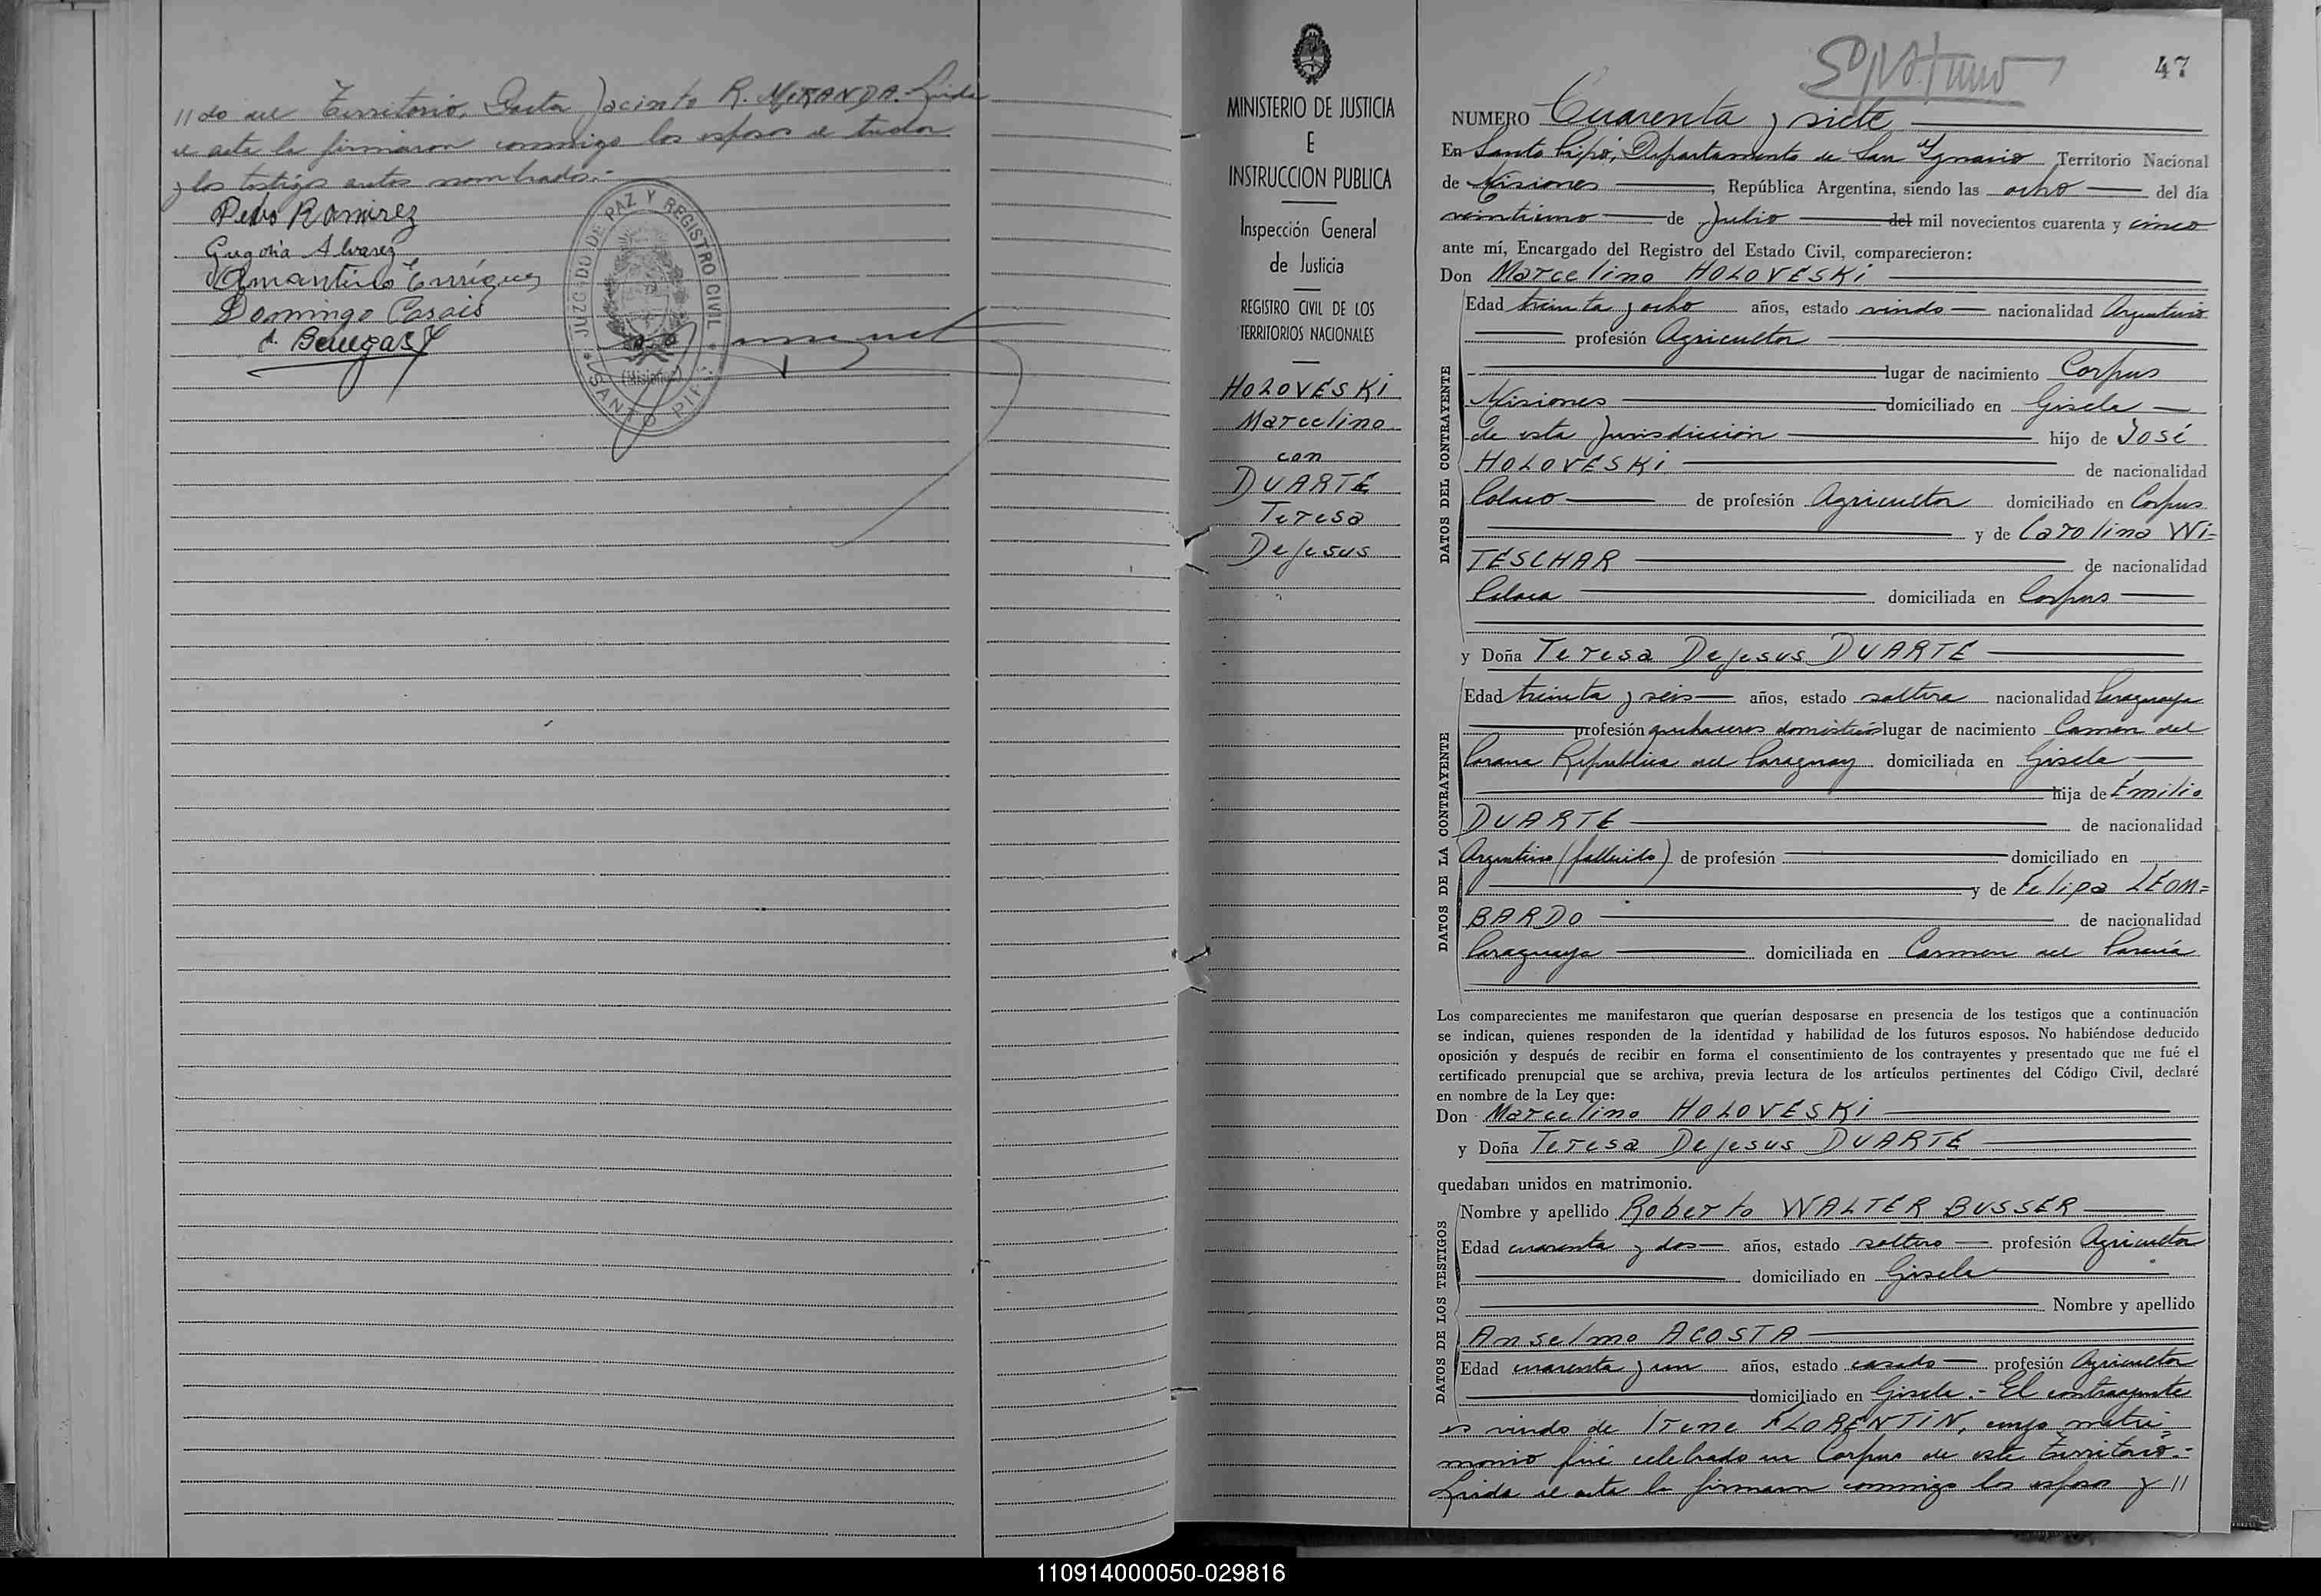 // do del Territorio, Gasta Jacinto R. MIRANDA. Leida
el acta la firmaron conmigo los esposos el tudor
y los testigos antes nombrados.-
Pedro Ramirez
Gregoria Alvarez
Amantino Enríquez
Domingo Casais
A. Benegas
JUZGADO DE PAZ Y REGISTRO CIVIL
(Misiones)
SANTO PIPÓ
MINISTERIO DE JUSTICIA
E
INSTRUCCION PUBLICA
Inspección General
de Justicia
REGISTRO CIVIL DE LOS
TERRITORIOS NACIONALES
HOLOVESKI
Marcelino
con
DUARTE
Teresa
DeJesus
47
NUMERO Cuarenta y siete
En Santo Pipó, Departamento de San Ygnacio Territorio Nacional
de Misiones, República Argentina, siendo las ocho del día
veintiuno de Julio del mil novecientos cuarenta y cinco
ante mí, Encargado del Registro del Estado Civil, comparecieron:
Don Marcelino HOLOVESKI
DATOS DEL CONTRAYENTE
Edad treinta y ocho años, estado viudo nacionalidad Argentino
profesión Agricultor
lugar de nacimiento Corpus
Misiones domiciliado en Gisela
de esta Jurisdicción hijo de José
HOLOVESKI de nacionalidad
Polaco de profesión Agricultor domiciliado en Corpus
y de Carolina WI=
TESCHAR de nacionalidad
Polaca domiciliada en Corpus
y Doña Teresa DeJesus DUARTE
DATOS DE LA CONTRAYENTE
Edad treinta y seis años, estado soltera nacionalidad Paraguaya
profesión quehaceres domésticos lugar de nacimiento Carmen del
Parana Republica del Paraguay domiciliada en Gisela
hija de Emilio
DUARTE de nacionalidad
Argentino (fallecido) de profesión domiciliado en
y de Felipa LEOM=
BARDO de nacionalidad
Paraguaya domiciliada en Carmen del Paraná
Los comparecientes me manifestaron que querían desposarse en presencia de los testigos que a continuación
se indican, quienes responden de la identidad y habilidad de los futuros esposos. No habiéndose deducido
oposición y después de recibir en forma el consentimiento de los contrayentes y presentado que me fué el
certificado prenupcial que se archiva, previa lectura de los artículos pertinentes del Código Civil, declaré
en nombre de la Ley que:
Don Marcelino HOLOVESKI
y Doña Teresa DeJesus DUARTE
quedaban unidos en matrimonio.
DATOS DE LOS TESTIGOS
Nombre y apellido Roberto WALTER BUSSER
Edad cuarenta y dos años, estado soltero profesión Agricultor
domiciliado en Gisela
Nombre y apellido
Anselmo ACOSTA
Edad cuarenta y un años, estado casado profesión Agricultor
domiciliado en Gisela.- El contrayente
es viudo de Irene FLORENTIN, cuyo matri=
monio fué celebrado en Corpus de este Territorio.-
Leida el acta la firmaron conmigo los esposos y //
110914000050-029816